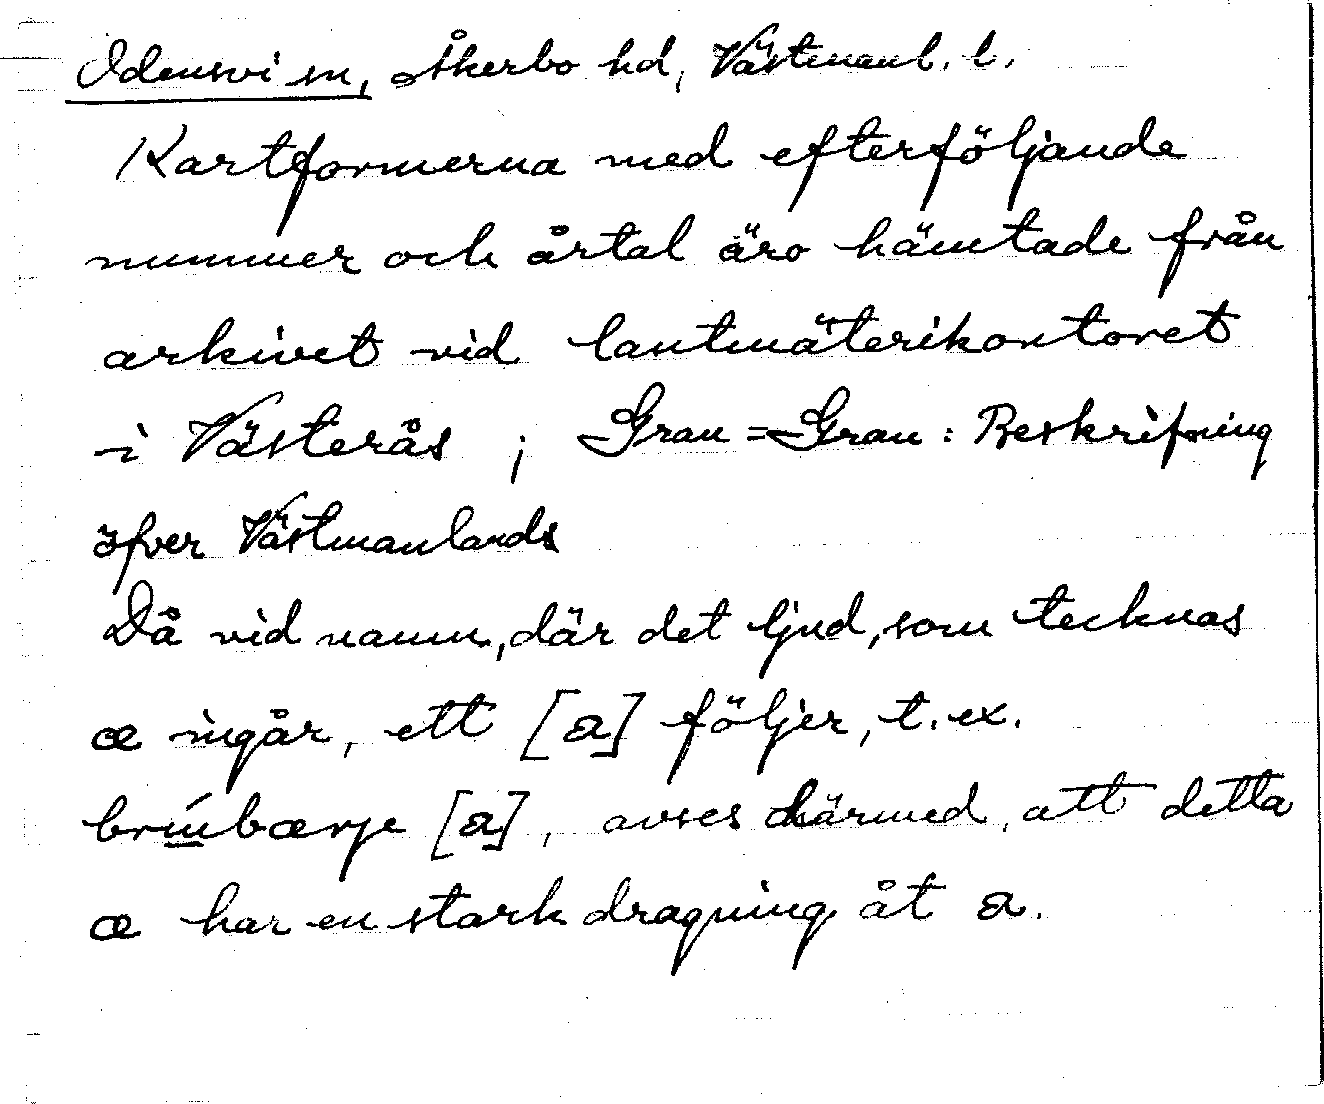 Odensvi sn, Åkerbo hd, Västmanl. l.
Kartformerna med efterföljande
nummer och årtal äro hämtade från
arkivet vid lantmäterikontoret
i Västerås ; Grau = Grau : Beskrifning
öfver Västmanlands
Då vid namn, där det ljud, som tecknas
æ ingår, ett [a] följer, t. ex.
bærje [a], avses härmed, att detta
æ har en stark dragning åt a.